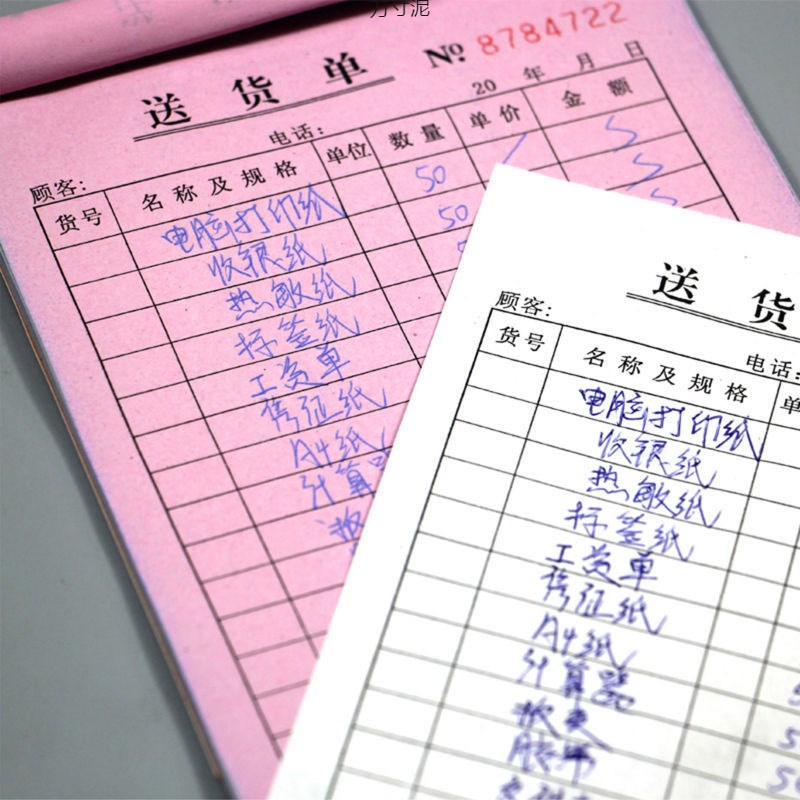 万寸泥
送货单 № 8784722
20 年 月 日
顾客: 电话:
货号 名称及规格 单位 数量 单价 金额
电脑打印纸 50
收银纸 50
热敏纸
标签纸
工资单
凭证纸
A4纸
计算器
送货
顾客: 电话:
货号 名称及规格 单
电脑打印纸
收银纸
热敏纸
标签纸
工资单
凭证纸
A4纸
计算器
胶带